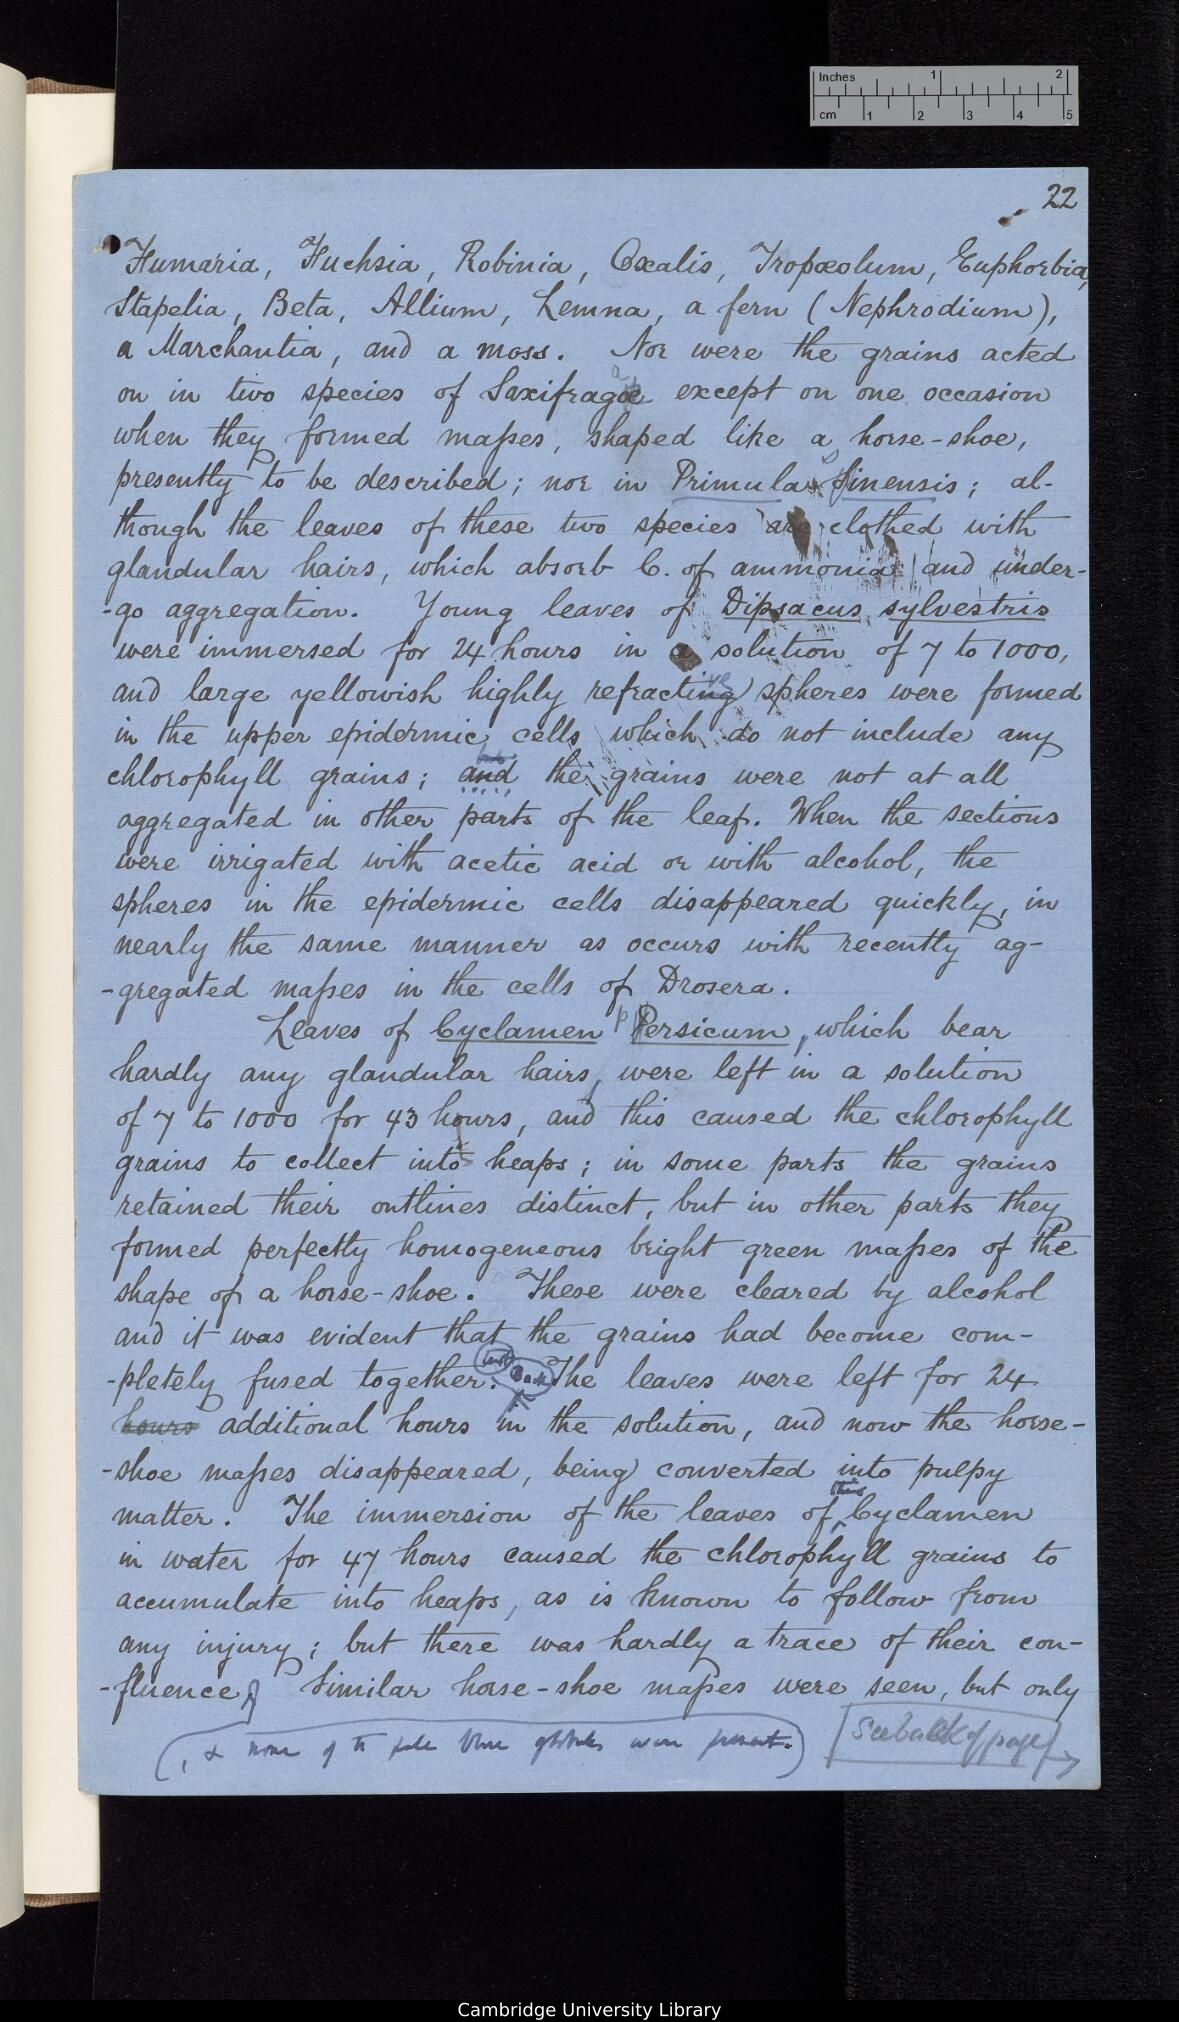 Inches 1 2
cm 1 2 3 4 5
22
Fumaria, Fuchsia, Robinia, Oxalis, Tropæolum, Euphorbia,
Stapelia, Beta, Allium, Lemna, a fern (Nephrodium),
a Marchantia, and a moss. Nor were the grains acted
on in two species of Saxifragæ except on one occasion
when they formed maſses, shaped like a horse-shoe,
presently to be described; nor in Primula Sinensis; al-
though the leaves of these two species are clothed with
glandular hairs, which absorb C. of ammonia and under-
-go aggregation. Young leaves of Dipsacus sylvestris
were immersed for 24 hours in a solution of 7 to 1000,
ve
and large yellowish highly refracting spheres were formed
in the upper epidermic cells which do not include any
but
chlorophyll grains; and the grains were not at all
aggregated in other parts of the leaf. When the sections
were irrigated with acetic acid or with alcohol, the
spheres in the epidermic cells disappeared quickly, in
nearly the same manner as occurs with recently ag-
-gregated maſses in the cells of Drosera.
Leaves of Cyclamen Persicum, which bear
hardly any glandular hairs, were left in a solution
of 7 to 1000 for 43 hours, and this caused the chlorophyll
grains to collect into heaps; in some parts the grains
retained their outlines distinct, but in other parts they
formed perfectly homogeneous bright green maſses of the
shape of a horse-shoe. These were cleared by alcohol
and it was evident that the grains had become com-
-pletely fused together. Back The leaves were left for 24
hours additional hours in the solution, and now the horse-
-shoe maſses disappeared, being converted into pulpy
this
matter. The immersion of the leaves of Cyclamen
in water for 47 hours caused the chlorophyll grains to
accumulate into heaps, as is known to follow from
any injury; but there was hardly a trace of their con-
-fluence Similar horse-shoe maſses were seen, but only
(, & none of the pale blue globules were present.)
See back of page
Cambridge University Library